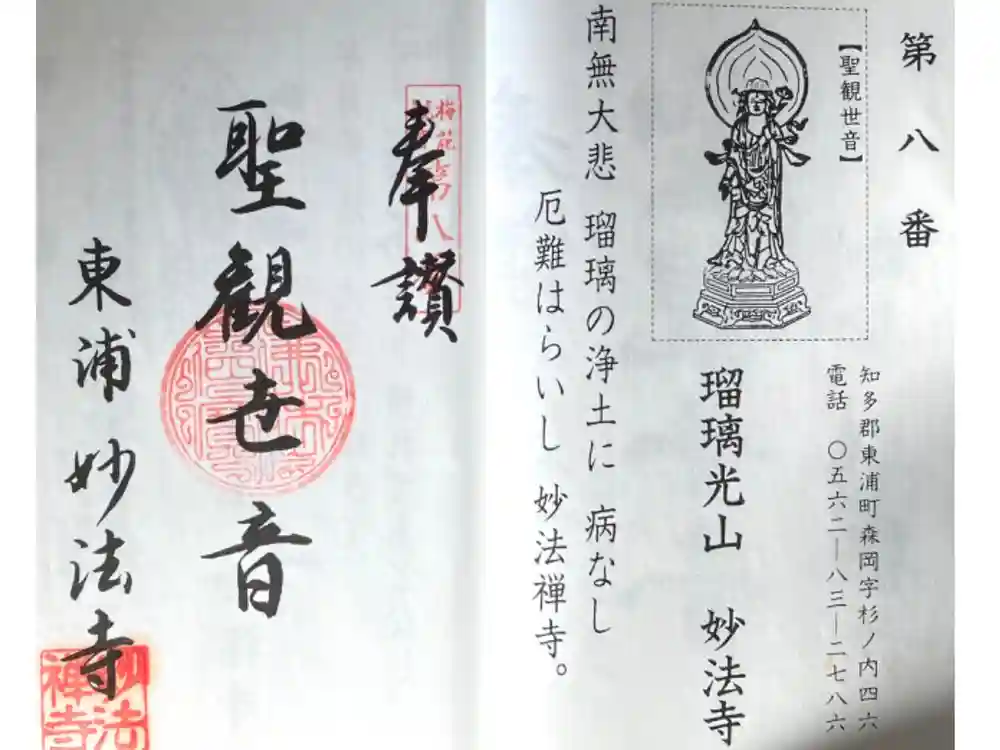 第八番
【聖観世音】
知多郡東浦町森岡字杉ノ内四六
電話 〇五六二―八三―二七八六
瑠璃光山 妙法寺
南無大悲 瑠璃の浄土に 病なし
厄難はらいし 妙法禅寺。
奉讃
聖観世音
東浦妙法寺